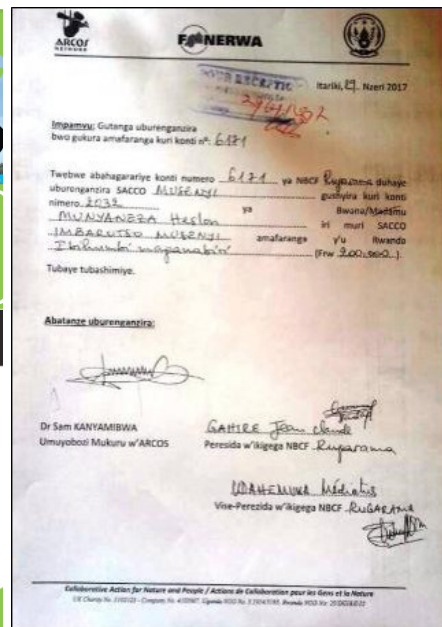 ARCOS
NETWORK
FONERWA
Itariki, 29. Nzeri 2017
Impamvu: Gutanga uburenganzira
bwo gukura amafaranga kuri konti nº: 6171
Twebwe abahagarariye konti numero 6171 ya NBCF Rugarama duhaye
uburenganzira SACCO MUSENYI gushyira kuri konti
nimero 2032 ya Bwana/Madamu
MUNYANEZA Heslon iri muri SACCO
IMBARUTSO MUSENYI amafaranga y'u Rwanda
Ibihumbi magana abiri (Frw 200,000).
Tubaye tubashimiye.
Abatanze uburenganzira:
Dr Sam KANYAMIBWA
Umuyobozi Mukuru w'ARCOS
GAHIRE Jean Claude
Peresida w'ikigega NBCF Rugarama
UWAHEMUKA Médiatis
Vise-Perezida w'ikigega NBCF RUGARAMA
Collaborative Action for Nature and People / Actions de Collaboration pour les Gens et la Nature